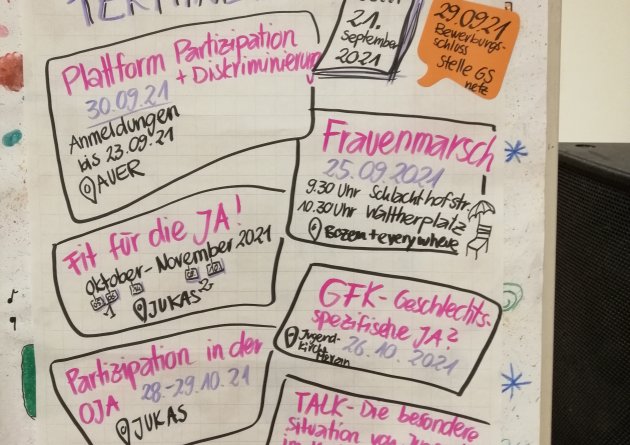 TERMINE
21.
September
2021
29.09.21
Bewerbungs-
schluss
Stelle GS
netz
Plattform Partizipation
+ Diskriminierung
30.09.21
Anmeldungen
bis 23.09.21
AUER
Frauenmarsch
25.09.2021
9.30 Uhr Schlachthofstr.
10.30 Uhr Waltherplatz
Bozen + everywhere
Fit für die JA!
Oktober - November 2021
JUKAS
GFK - Geschlechts-
spezifische JA²
Jugend-
kirche
26.10.2021
Partizipation in der
OJA
28-29.10.21
JUKAS
TALK - Die besondere
Situation von